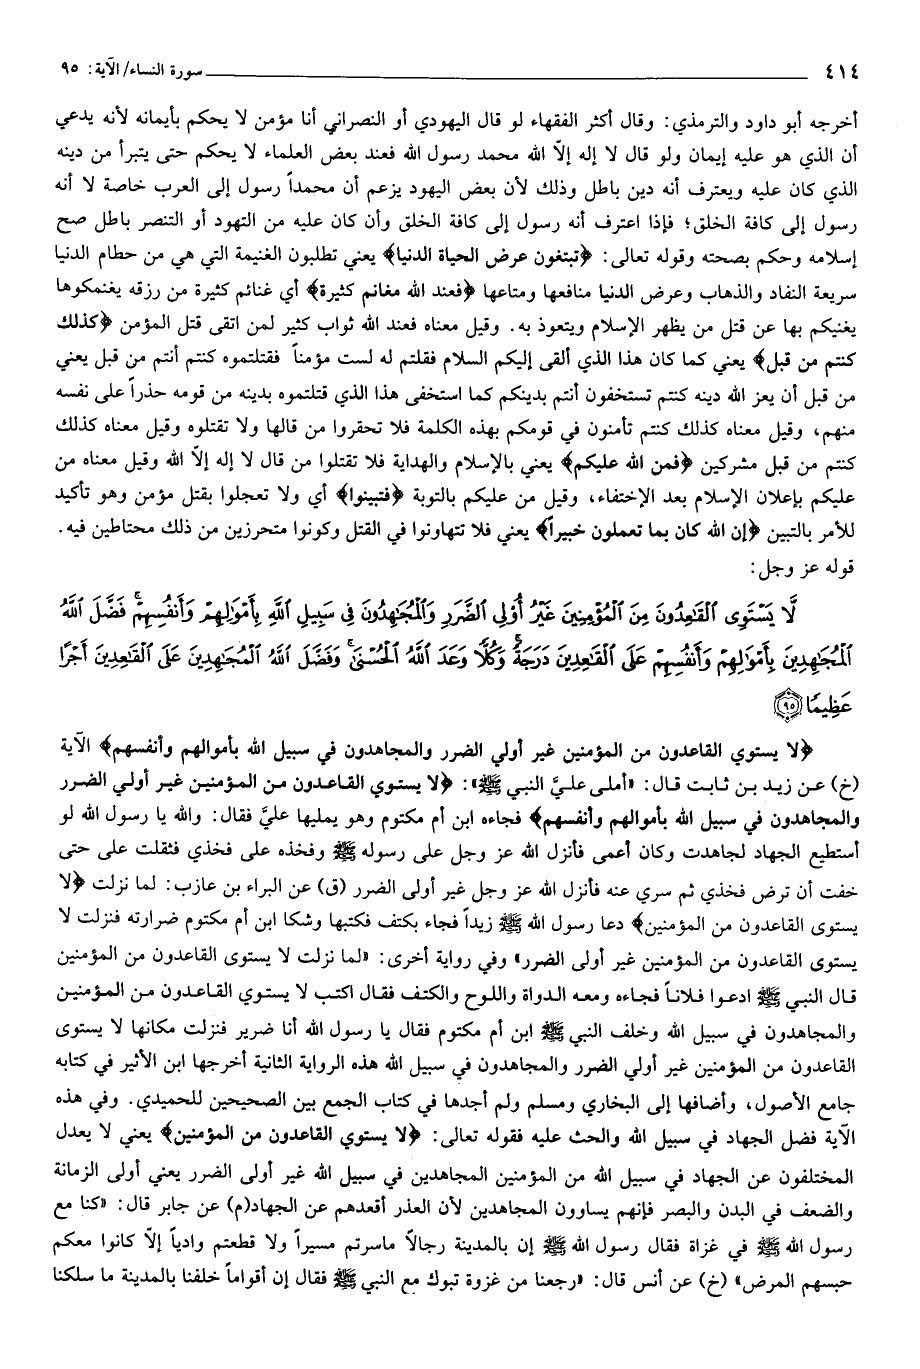 ٤١٤ سورة النساء/ الآية: ٩٥
أخرجه أبو داود والترمذي: وقال أكثر الفقهاء لو قال اليهودي أو النصراني أنا مؤمن لا يحكم بأيمانه لأنه يدعي
أن الذي هو عليه إيمان ولو قال لا إله إلّا الله محمد رسول الله فعند بعض العلماء لا يحكم حتى يتبرأ من دينه
الذي كان عليه ويعترف أنه دين باطل وذلك لأن بعض اليهود يزعم أن محمداً رسول إلى العرب خاصة لا أنه
رسول إلى كافة الخلق؛ فإذا اعترف أنه رسول إلى كافة الخلق وأن كان عليه من التهود أو التنصر باطل صح
إسلامه وحكم بصحته وقوله تعالى: ﴿تبتغون عرض الحياة الدنيا﴾ يعني تطلبون الغنيمة التي هي من حطام الدنيا
سريعة النفاد والذهاب وعرض الدنيا منافعها ومتاعها ﴿فعند الله مغانم كثيرة﴾ أي غنائم كثيرة من رزقه يغنمكوها
يغنيكم بها عن قتل من يظهر الإسلام ويتعوذ به. وقيل معناه فعند الله ثواب كثير لمن اتقى قتل المؤمن ﴿كذلك
كنتم من قبل﴾ يعني كما كان هذا الذي ألقى إليكم السلام فقلتم له لست مؤمناً فقتلتموه كنتم أنتم من قبل يعني
من قبل أن يعز الله دينه كنتم تستخفون أنتم بدينكم كما استخفى هذا الذي قتلتموه بدينه من قومه حذراً على نفسه
منهم، وقيل معناه كذلك كنتم تأمنون في قومكم بهذه الكلمة فلا تحقروا من قالها ولا تقتلوه وقيل معناه كذلك
كنتم من قبل مشركين ﴿فمن الله عليكم﴾ يعني بالإسلام والهداية فلا تقتلوا من قال لا إله إلّا الله وقيل معناه من
عليكم بإعلان الإسلام بعد الإختفاء، وقيل من عليكم بالتوبة ﴿فتبينوا﴾ أي ولا تعجلوا بقتل مؤمن وهو تأكيد
للأمر بالتبين ﴿إن الله كان بما تعملون خبيراً﴾ يعني فلا تتهاونوا في القتل وكونوا متحرزين من ذلك محتاطين فيه.
قوله عز وجل:
لَّا يَسْتَوِى الْقَاعِدُونَ مِنَ الْمُؤْمِنِينَ غَيْرُ أُوْلِى الضَّرَرِ وَالْمُجَاهِدُونَ فِى سَبِيلِ اللَّهِ بِأَمْوَالِهِمْ وَأَنفُسِهِمْ ۚ فَضَّلَ اللَّهُ
الْمُجَاهِدِينَ بِأَمْوَالِهِمْ وَأَنفُسِهِمْ عَلَى الْقَاعِدِينَ دَرَجَةً ۚ وَكُلًّا وَعَدَ اللَّهُ الْحُسْنَىٰ ۚ وَفَضَّلَ اللَّهُ الْمُجَاهِدِينَ عَلَى الْقَاعِدِينَ أَجْرًا
عَظِيمًا ٩٥
﴿لا يستوي القاعدون من المؤمنين غير أولي الضرر والمجاهدون في سبيل الله بأموالهم وأنفسهم﴾ الآية
(خ) عن زيد بن ثابت قال: «أملى عليَّ النبي ﷺ»: ﴿لا يستوي القاعدون من المؤمنين غير أولي الضرر
والمجاهدون في سبيل الله بأموالهم وأنفسهم﴾ فجاءه ابن أم مكتوم وهو يمليها عليَّ فقال: والله يا رسول الله لو
أستطيع الجهاد لجاهدت وكان أعمى فأنزل الله عز وجل على رسوله ﷺ وفخذه على فخذي فثقلت على حتى
خفت أن ترض فخذي ثم سري عنه فأنزل الله عز وجل غير أولى الضرر (ق) عن البراء بن عازب: لما نزلت ﴿لا
يستوى القاعدون من المؤمنين﴾ دعا رسول الله ﷺ زيداً فجاء بكتف فكتبها وشكا ابن أم مكتوم ضرارته فنزلت لا
يستوى القاعدون من المؤمنين غير أولى الضرر» وفي رواية أخرى: «لما نزلت لا يستوى القاعدون من المؤمنين
قال النبي ﷺ ادعوا فلاناً فجاءه ومعه الدواة واللوح والكتف فقال اكتب لا يستوي القاعدون من المؤمنين
والمجاهدون في سبيل الله وخلف النبي ﷺ ابن أم مكتوم فقال يا رسول الله أنا ضرير فنزلت مكانها لا يستوى
القاعدون من المؤمنين غير أولي الضرر والمجاهدون في سبيل الله هذه الرواية الثانية أخرجها ابن الأثير في كتابه
جامع الأصول، وأضافها إلى البخاري ومسلم ولم أجدها في كتاب الجمع بين الصحيحين للحميدي. وفي هذه
الآية فضل الجهاد في سبيل الله والحث عليه فقوله تعالى: ﴿لا يستوي القاعدون من المؤمنين﴾ يعني لا يعدل
المختلفون عن الجهاد في سبيل الله من المؤمنين المجاهدين في سبيل الله غير أولى الضرر يعني أولى الزمانة
والضعف في البدن والبصر فإنهم يساوون المجاهدين لأن العذر أقعدهم عن الجهاد(م) عن جابر قال: «كنا مع
رسول الله ﷺ في غزاة فقال رسول الله ﷺ إن بالمدينة رجالاً ماسرتم مسيراً ولا قطعتم وادياً إلّا كانوا معكم
حبسهم المرض» (خ) عن أنس قال: «رجعنا من غزوة تبوك مع النبي ﷺ فقال إن أقواماً خلفنا بالمدينة ما سلكنا